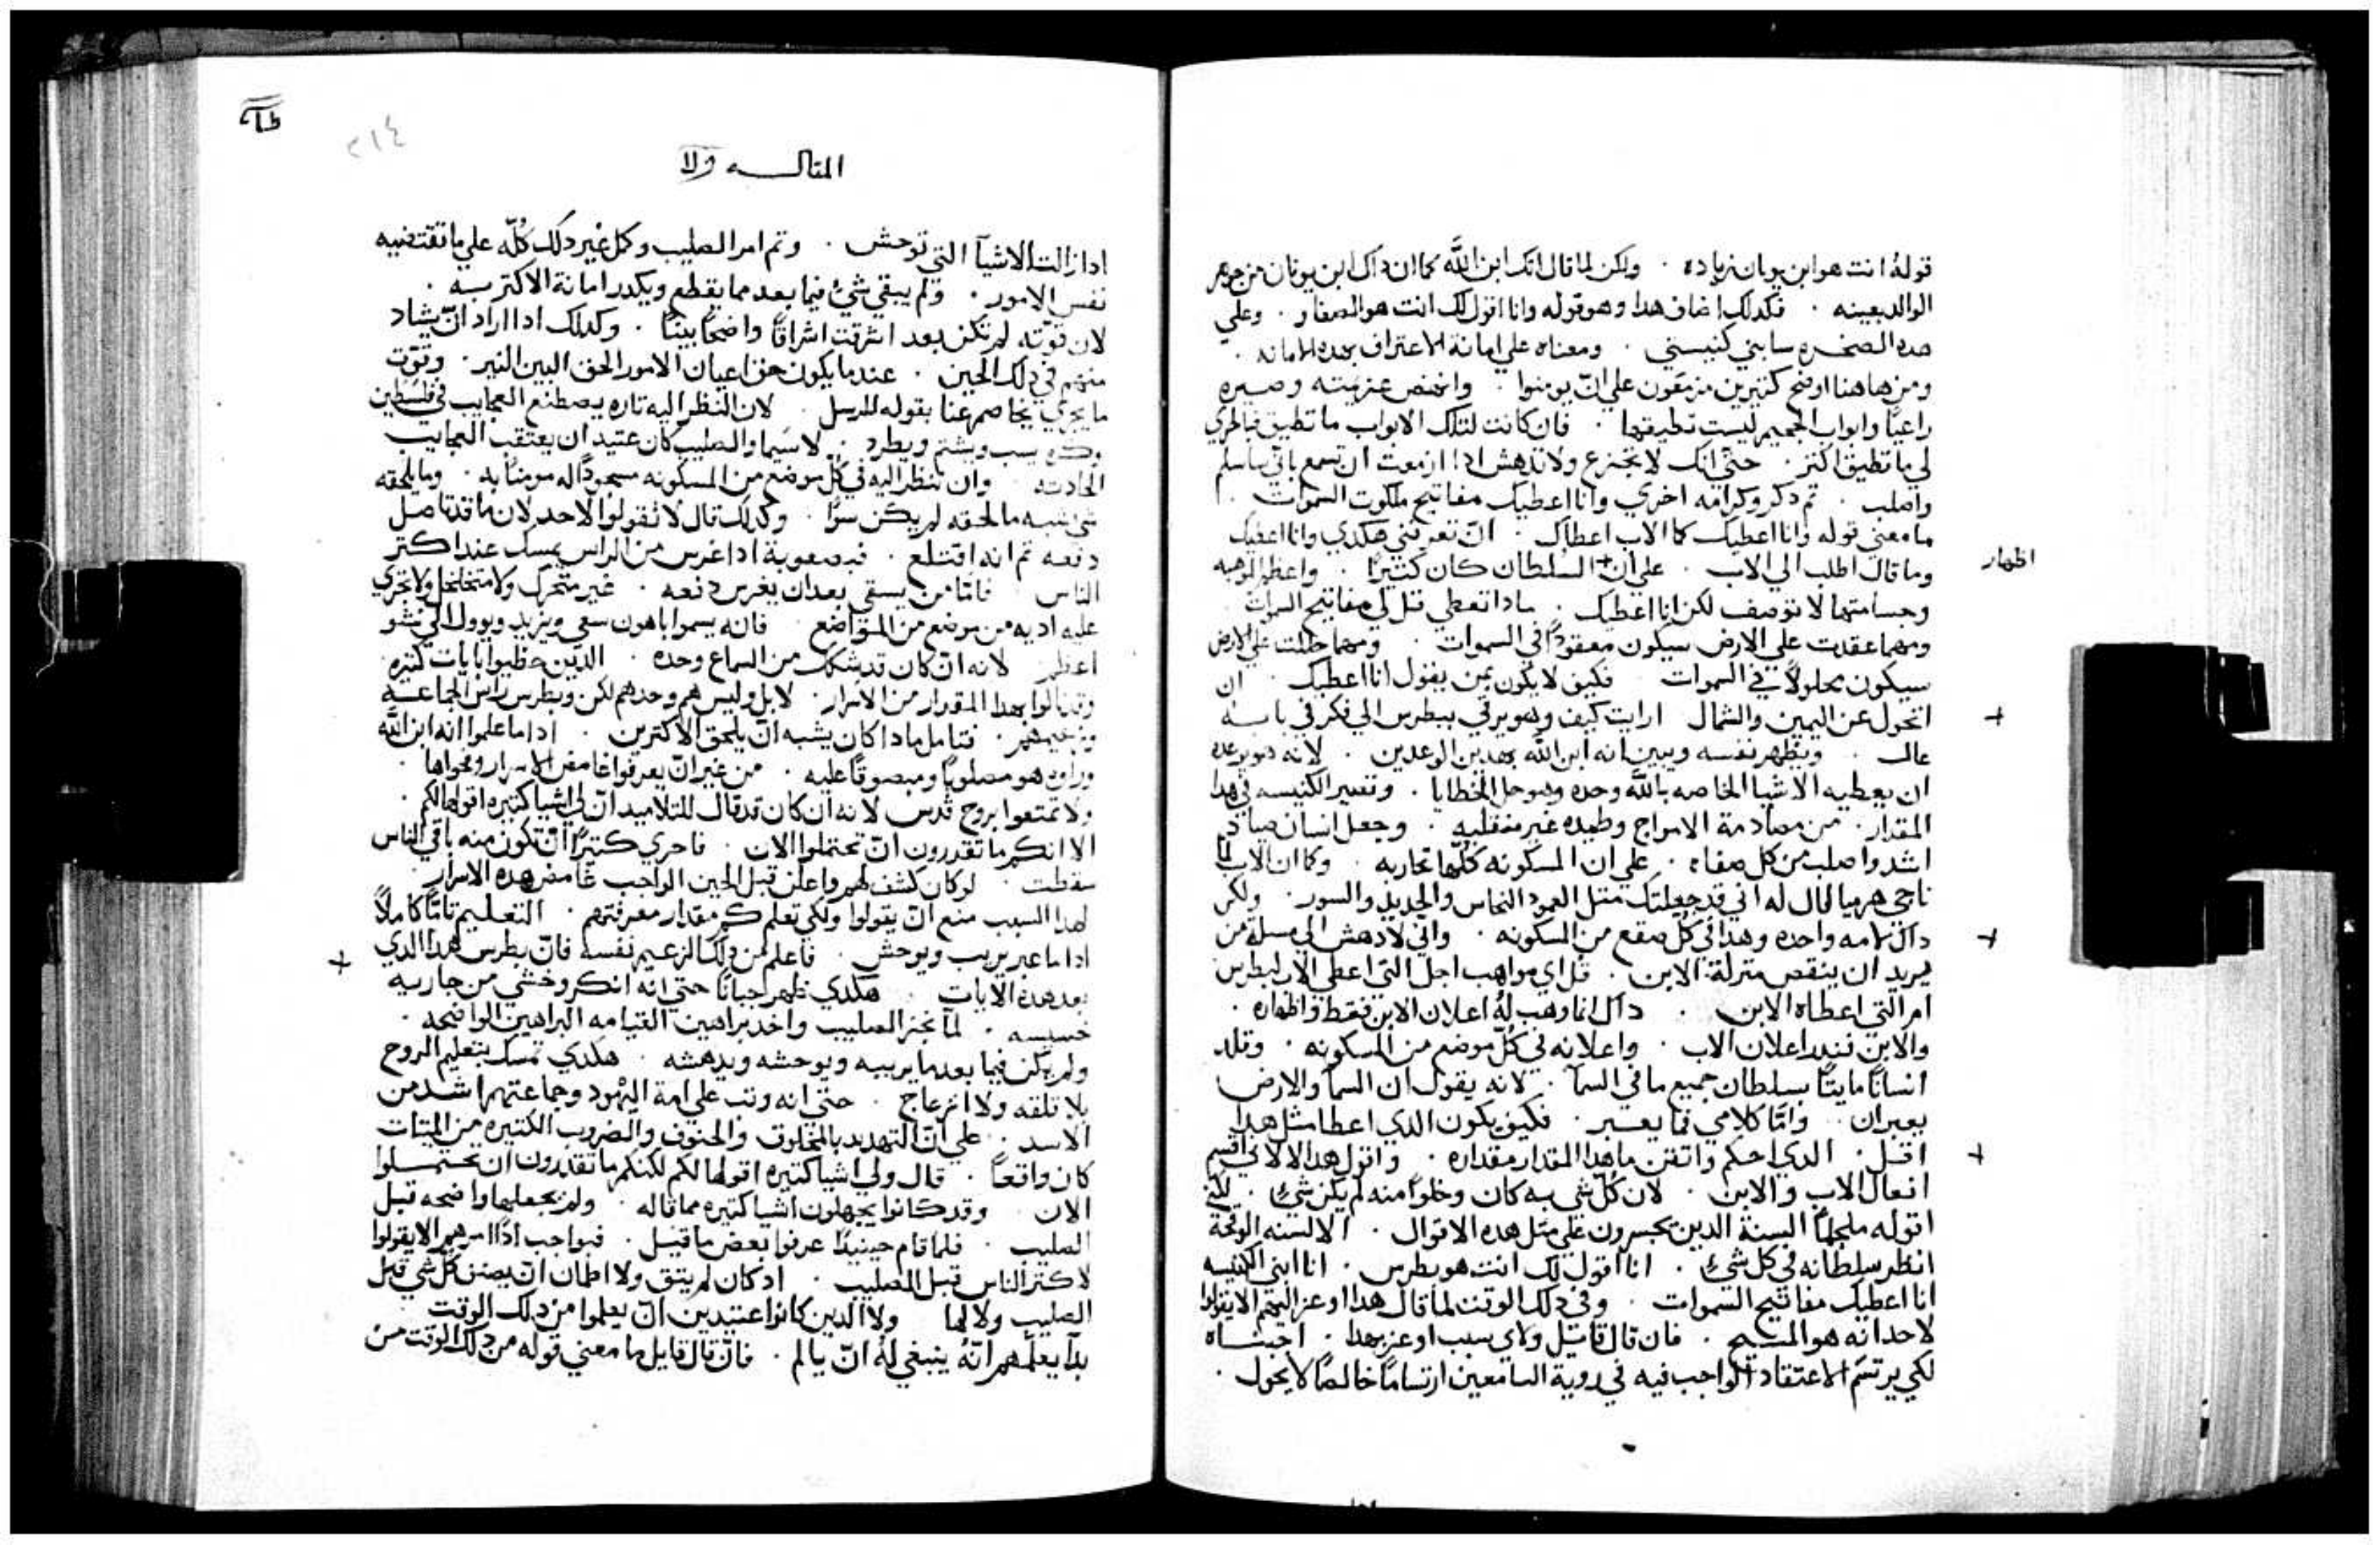 قوله انت هو ابن يونان زياده . ولكن لما قال انك ابن الله كما ان داك ابن يونان من جوهر
الوالد بعينه . فكدلك اضاف هدا وهو قوله وانا اقول لك انت هو الصفا . وعلي
هده الصخره سابني كنيستي . ومعناه علي امانة الاعتراف بهده الامانه .
ومن هاهنا اوضح كتيرين مزمعون علي انّ يومنوا . وانهض عزيمته وصيره
راعيًا وابواب الجحيم ليست تطيقها . فان كانت لتلك الابواب ما تطيق فبالحري
لي ما تطيق اكتر . حتي انك لا تجزع ولا تدهش ادا ازمعت ان تسمع باني ساسلم
واصلب . تم دكر وكرامه اخري وانا اعطيك مفاتيح ملكوت السموات .
ما معني قوله وانا اعطيك كما الاب اعطاك . انّ تعرفني هكدي وانا اعطيك
وما قال اطلب الي الاب . علي ان السلطان كان كتيرًا . واعظم الموهبه
اظهار
وجسامتها لا توصف لكن انا اعطيك . مادا تعطي قل لي مفاتيح السموات
ومهما عقدت علي الارض سيكون معقودًا في السموات . ومهما حللت علي الارض
سيكون محلولاً في السموات فكيف لا يكون بمن يقول انا اعطيك . ان
اتحول عن اليمين والشمال ارايت كيف وهو يرقي ببطرس الي فكر في باسه
عال . ويظهر نفسه ويبين انه ابن الله بهدين الوعدين . لانه هو يوعده
ان يعطيه الاشيا الخاصه بالله وحده وهو حل الخطايا . وتصير الكنيسه في هدا
المقدار . من مصادمة الامواج وطيده غير منقلبه . وجعل انسان صياد
اشد واصلب من كل صفاه . علي ان المسكونه كلّها تحاربه . وكما ان الاب لما
ناجي هرميا قال له اني قد جعلتك متل العمود النحاس والحديد والسور . ولكن
داك لامه واحده وهدا في كل صقع من المسكونه . واني لادهش الي مسلة من
يريد ان ينقص منزلة الابن . قل اي مواهب اجل التي اعطي الاب لبطرس
ام التي اعطاه الابن . داك انما وهب له اعلان الابن فقط واظهاره .
والابن نندا اعلان الاب . واعلانه في كل موضع من المسكونه . وقلد
انسانًا مايتًا بسلطان جميع ما في السمآ . لانه يقول ان السمآ والارض
يعبران . وامّا كلامي فما يعبر . فكيف يكون الدي اعطا مثل هدا
اقل . الدي احكم واتقن ما هدا المقدار مقداره . واقول هدا لا لاني اقسم
افعال الاب والابن . لان كلّ شي به كان وخلوًا منه لم يكن شيءٍ . لكني
اقوله ملجمًا السنة الدين يجسرون علي متل هده الاقوال . الالسنه الوقحة
انظر سلطانه في كل شيءٍ . انا اقول لك انت هو بطرس . انا ابني الكنيسه
انا اعطيك مفاتيح السموات . وفي دلك الوقت لما قال هدا اوعز اليهم الا يقولوا
لاحد انه هو المسيح . فان قال قايل ولاي سبب اوعز بهدا . اجبناه
لكي يرتسم الاعتقاد الواجب فيه في روية السامعين ارتسامًا خالصًا لا يحول .
٢١٤
المقالــــه
ادا زالت الاشيآ التي توحش . وتم امر الصليب وكل غير دلك كلّه علي ما تقتضيه
نفس الامور . ولم يبقي شيءٌ فيما بعد مما يقطع ويكدر امانة الاكتر به .
لان قوّته لم تكن بعد اشرقت اشراقًا واضحًا بينًا . وكدلك ادا اراد انّ يشاد
منهم في دلك الحين . عندما يكون حق اعيان الامور الحق البين النير . وقوّت
ما يجري يخاصم عنا بقوله للرسل . لان النظر اليه تاره يصطنع العجايب في فلسطين
يسب ويشتم ويطرد . لا سيما والصليب كان عتيد ان يعتقب العجايب
الحادته وان تنظر اليه في كل موضع من المسكونه مسجودًا له مومنًا به . وما يلحقه
شي شبه ما لحقه لم يكن سوًا . وكدلك قال لا تقولوا لاحد لان ما قد تاصل
دفعه تم انه اقتلع . فبصعوبة ادا غرس من الراس يمسك عند اكتر
الناس فامّا من يسقي بعد ان يغرس دفعه . غير متحرك ولا متخلخل ولا تجري
عليه اديه من موضع من المواضع . فانه يسموا باهون سعي ويزيد ويوول الي نشو
اعظم لانه ان كان تدشكك من السماع وحده . الدين حظيوا بايات كتيره
وقد نالوا بهدا المقدار من الاسرار . لا بل وليس هم وحدهم لكن وبطرس راس الجماعه
وزعيمهم . فتامل مادا كان يشبه انّ يلحق الاكترين . ادا ما علموا انه ابن الله
وراوه هو مصلوبًا ومبصوقًا عليه . من غير انّ يعرفوا غامض الاسرار وفحواها .
ولا تمتعوا بروح قدس لانه ان كان قد قال للتلاميد انّ لي اشيا كتيره اقولها لكم .
الا انكم ما تقدرون انّ تحتملوا الان . فاحري كتيرًا انّ تكون منه باقي الناس
سقطت . لو كان كشف لهم واعلن قبل الحين الواجب غامض هده الاسرار .
لهدا السبب منع انّ يقولوا ولكي تعلم كم مقدار معرفتهم . التعليم تامًّا كاملاً
ادا ما عبر يريب ويوحش . فاعلم من دلك الزعيم نفسه فانّ بطرس هدا الدي
بعد هده الايات . هكدي ظهر جبانًا حتي انه انكر وخشي من جاريه
خسيسه . لما نجز الصليب واخد براهين القيامه البراهين الواضحه .
ولم يكن فيما بعد ما يريبه ويوحشه ويدهشه . هكدي تمسك بتعليم الروح
بلا قلقه ولا انزعاج . حتي انه وتب علي امة اليهود وجماعتهم اشد من
الاسد . علي انّ التهديد بالمخاوف والحتوف والضروب الكتيره من الميتات
كان واقعاً . قال ولي اشيا كتيره اقولها لكم لكنكم ما تقدرون ان تحتملوا
الان وقد كانوا يجهلون اشيا كتيره مما قاله . ولم يجعلها واضحه قبل
الصليب . فلما قام حينيدًا عرفوا بعض ما قيل . فبواجب ادًا امرهم الا يقولوا
لاكتر الناس قبل الصليب . اد كان لم يتق ولا اطمان انّ يصف كل شي قبل
الصليب ولا لها ولا الدين كانوا عتيدين انّ يعلموا من دلك الوقت
بدآ يعلّمهم انّهُ ينبغي لهُ انّ يالم . فانّ قال قايل ما معني قوله من دلك الوقت من